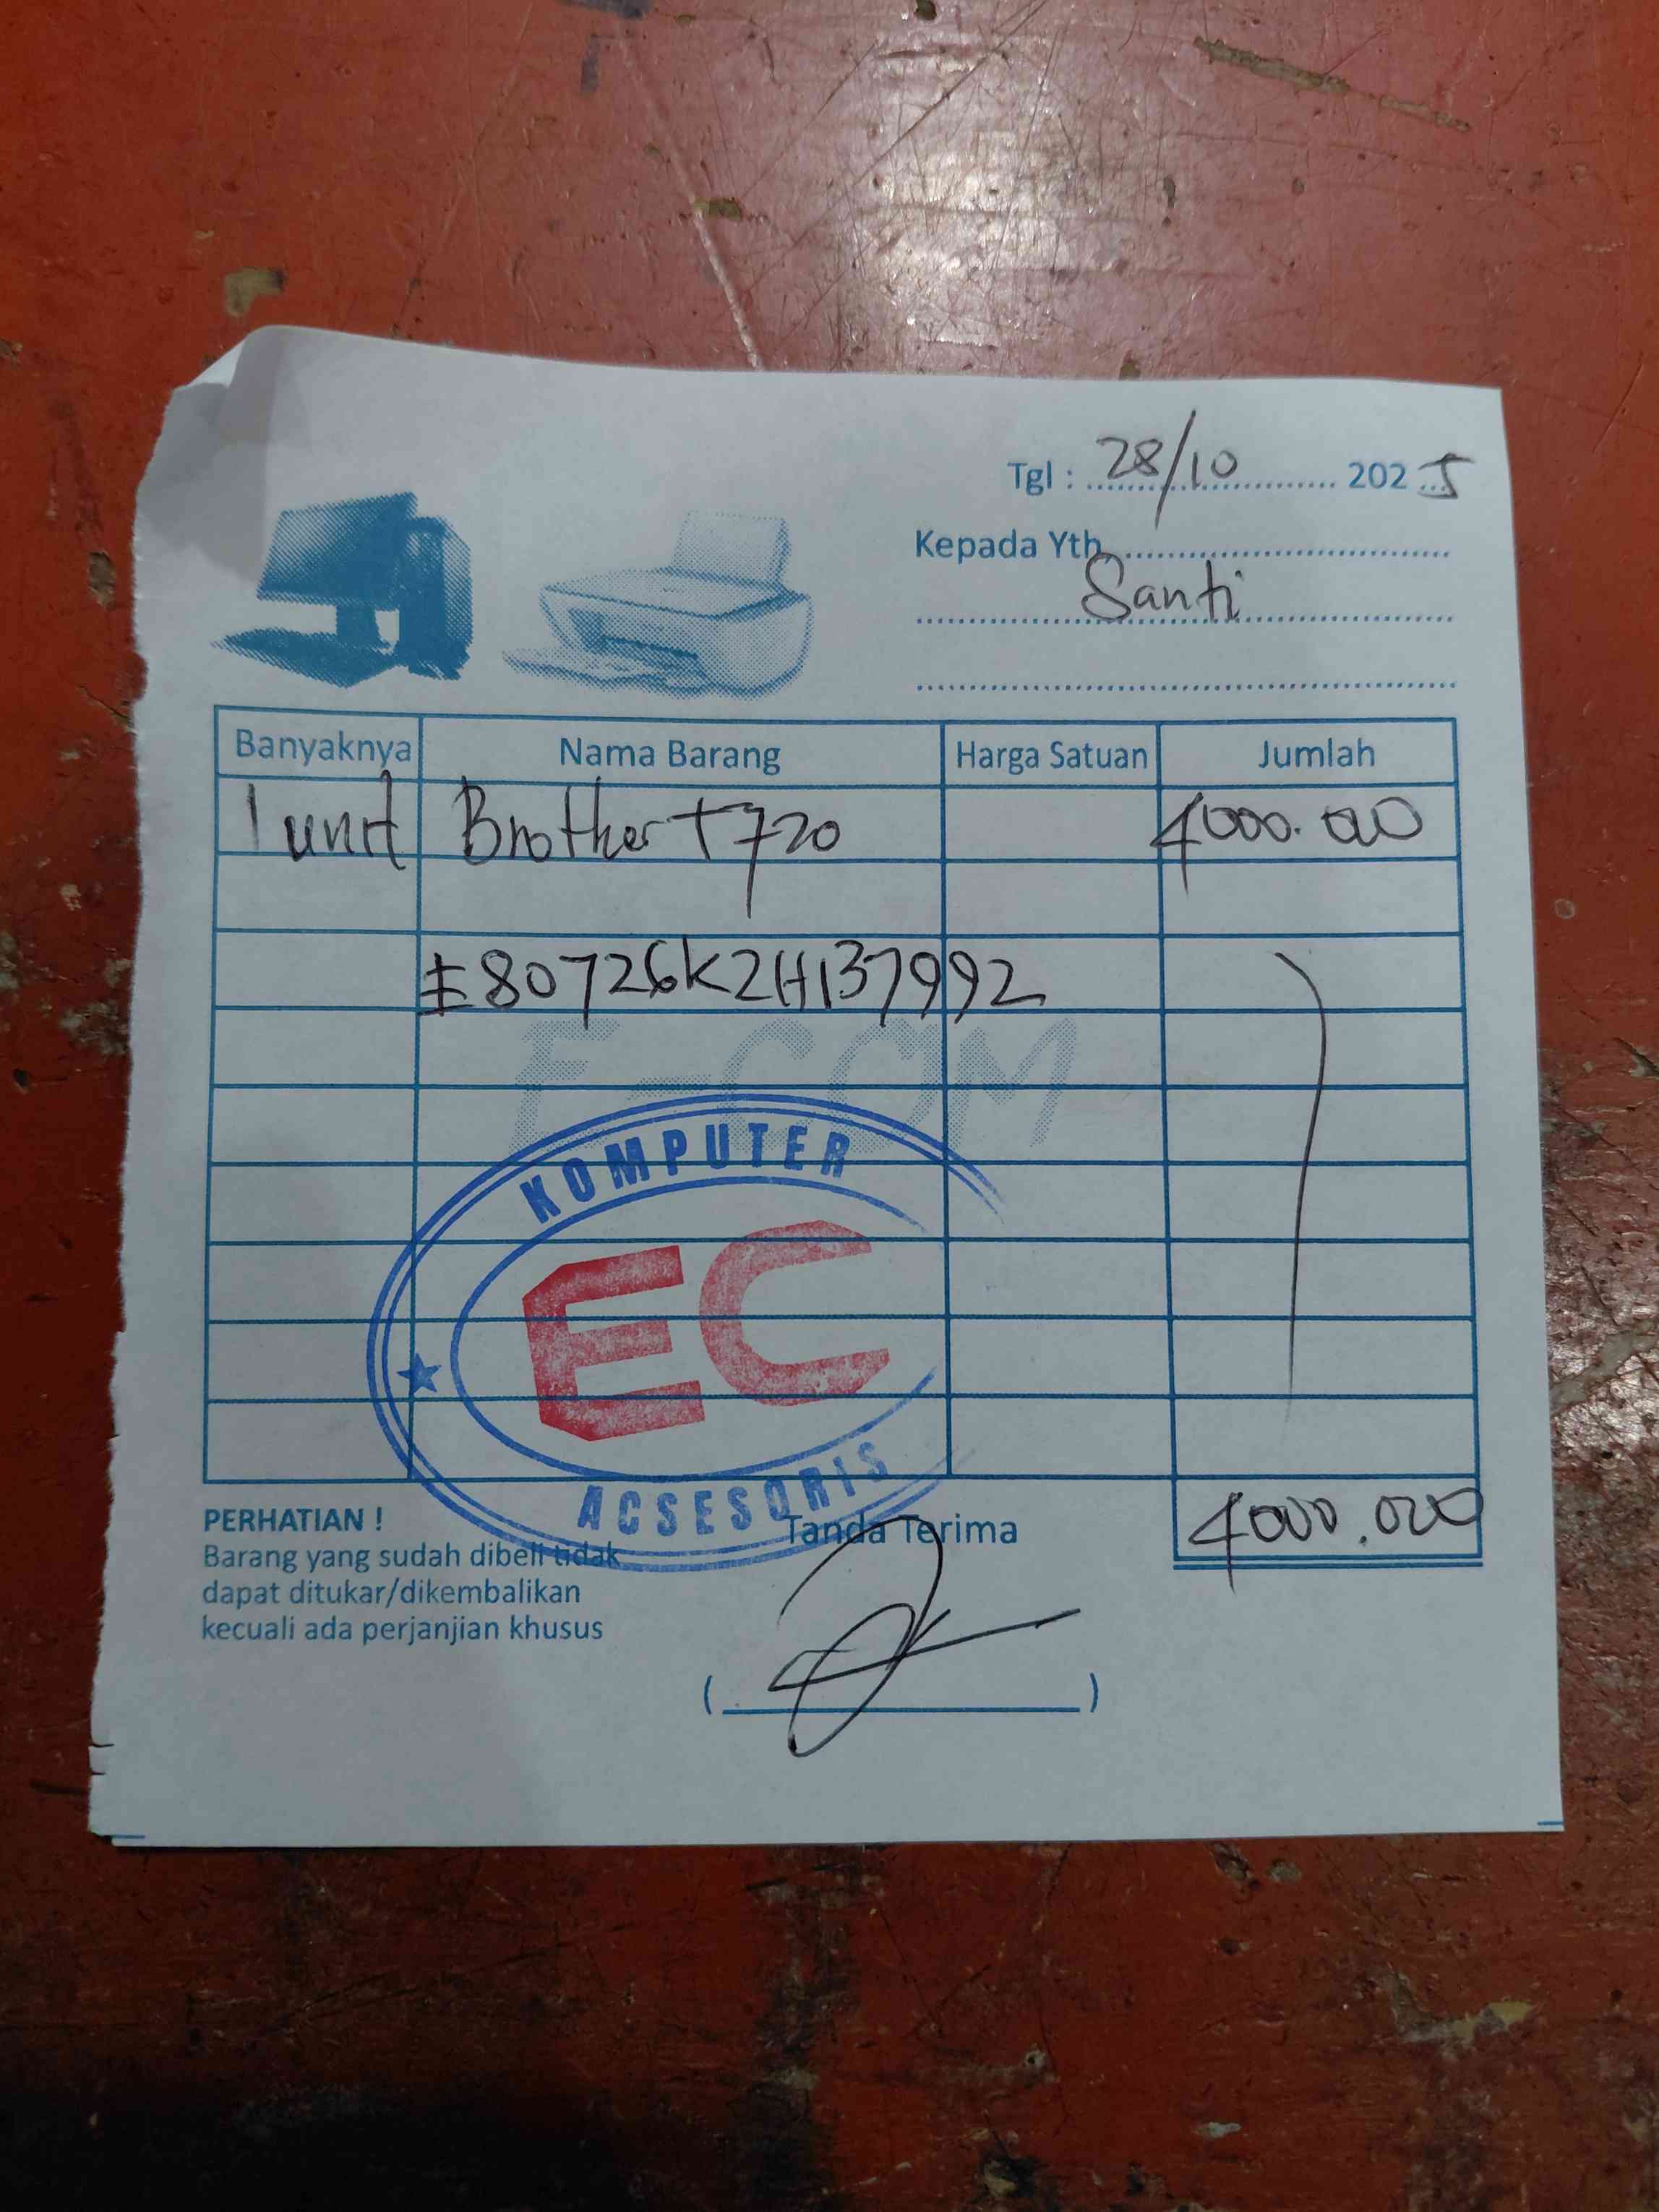 Tgl : 28/10 2025
Kepada Yth.
Santi
Banyaknya Nama Barang Harga Satuan Jumlah
1 unit Brother T720 4000.000
E80726K2H137992
E-COM
KOMPUTER
EC
ACSESORIS
4000.000
PERHATIAN !
Barang yang sudah dibeli tidak
dapat ditukar/dikembalikan
kecuali ada perjanjian khusus
Tanda Terima
( )